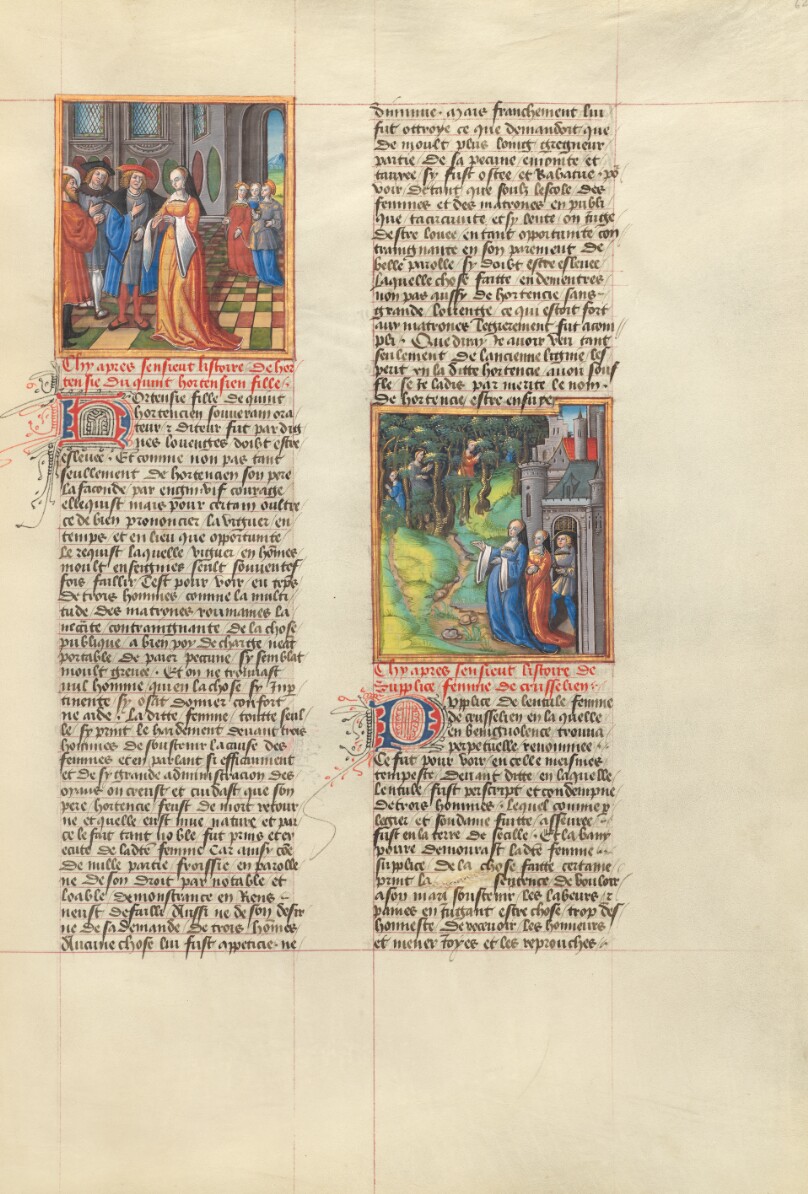 Chy apres sensieut listoire de hor
tensie du quint hortensien fille.
Hortensie fille de quint
hortencien souverain ora
teur z diteur fut par dig
nes louenges doibt estre
eslevee. Et comme non pas tant
seullement de hortencien son pere
la faconde par engin vif courage
ellequist mais pour certain oultre
ce de bien prononcier la viguer en
temps et en lieu que oportunite
le requist laquelle viguer en hommes
moult enseignies seult souventef
fois faillir Cest pour voir en teps
de trois hommes comme la multi
tude des matrones roumaines la
necite contraingnante de la chose
publique a bien poy de charge nent
portable de paier pecune sy semblat
moult greve. Et on ne trouvast
nul homme qui en la chose sy Inp
tinente sy osast donner confort
ne aide. La ditte femme toutte seul
le sy print le hardement devant trois
hommes de soustenir la cause des
femmes et en parlant si efficaument
et de sy grande administracion des
oyans on creust et cuidast que son
pere hortencie feust de mort retour
ne et quelle eust une nature et par
ce le fait tant noble fut prins et ex
ecute de ladte femme Car ainsy coe
de nulle partie froissie en parolle
ne de son droit par notable et
loable demonstrance en Rens
neust defaille Aussi ne de son desir
ne de sa demande de trois homes
Aucune chose lui fust appeticie ne
diminue. Mais franchement lui
fut ottroye ce que demandoit que
de moult plus loing gregneur
partie de sa pecune eniointe et
tauxee sy fust ostee et Rabatue. po
voir de tant que soulz lescole des
femmes et des matrones en publi
que taciturnite et sy leute on juge
destre louee en tant oportunite con
traingnante en son parement de
belle parolle sy doibt estre eslevee
laquelle chose faitte endementres
non pas aussy de hortencie sans
grande louenge ce qui estoit fort
aux matrones legierement fut acom
pli. Que diray je avoir veu tant
seulement de lancienne ligine les
perit en la ditte hortencie avoir souf
fle se je ladis par merite le nom
de hortencie estre ensuye
Chy apres sensieut listoire de
Supplice femme de crusselien.
Supplice de lentule femme
de crusselien en la quelle
en benignolence trouva
perpetuelle renommee.
Ce fut pour voir en celle meismes
tempeste devant ditte en laquelle
lentule fust perscript et condempne
de trois hommes. lequel comme p
legier et soudaine fuitte asseuree
fust en la terre de secille. Et la bany
povre demourast ladte femme
supplice de la chose faitte certaine
print la sentence de vouloir
a son mari soustenir les labeurs z
paines en juggant estre chose trop des
honneste de recevoir les honneurs
et mener joyes et les reprouches.